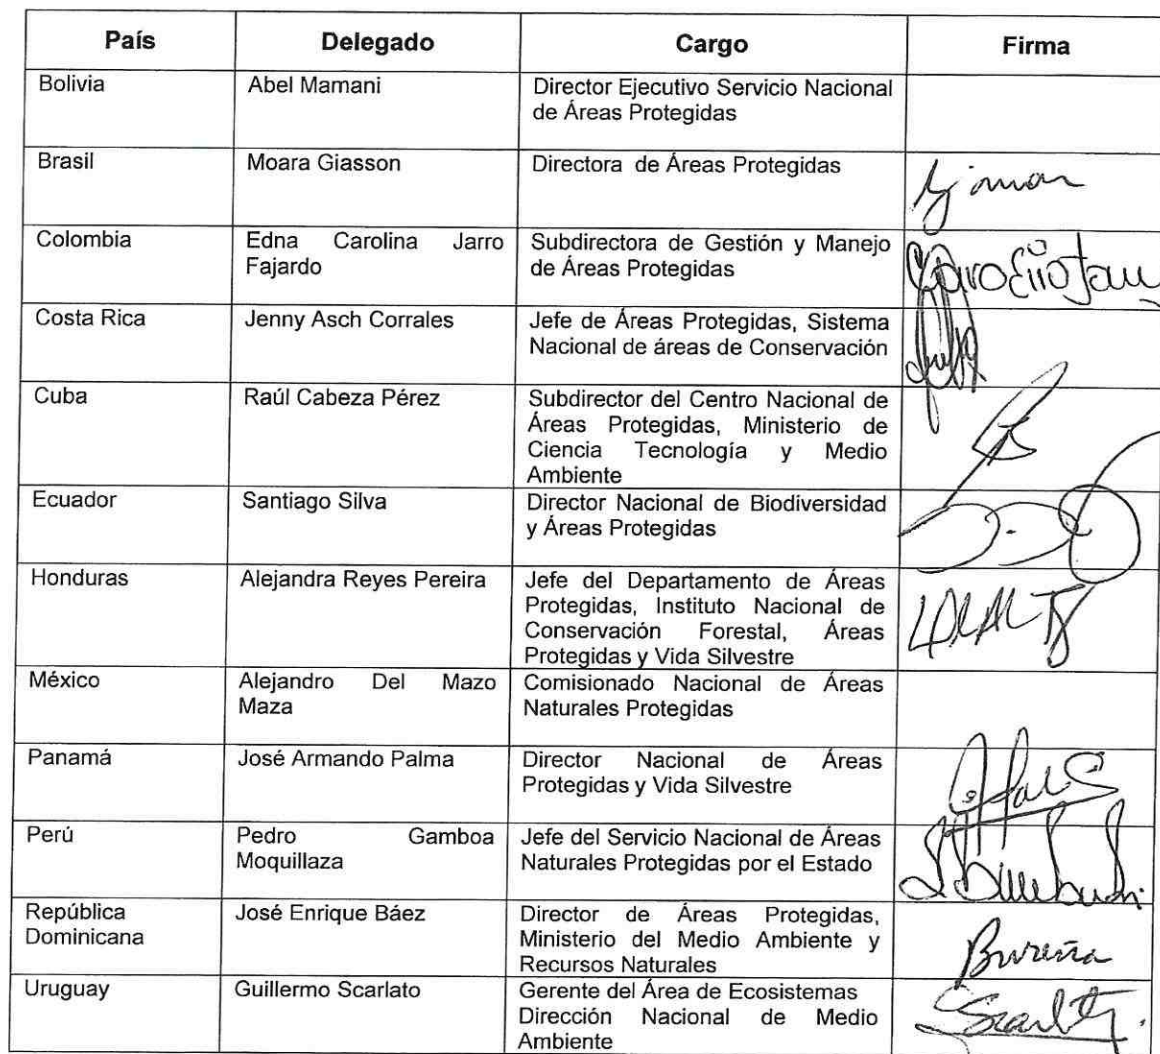 País Delegado Cargo Firma
Bolivia Abel Mamani Director Ejecutivo Servicio Nacional
de Áreas Protegidas
Brasil Moara Giasson Directora de Áreas Protegidas
Colombia Edna Carolina Jarro Subdirectora de Gestión y Manejo
Fajardo de Áreas Protegidas
Costa Rica Jenny Asch Corrales Jefe de Áreas Protegidas, Sistema
Nacional de áreas de Conservación
Cuba Raúl Cabeza Pérez Subdirector del Centro Nacional de
Áreas Protegidas, Ministerio de
Ciencia Tecnología y Medio
Ambiente
Ecuador Santiago Silva Director Nacional de Biodiversidad
y Áreas Protegidas
Honduras Alejandra Reyes Pereira Jefe del Departamento de Áreas
Protegidas, Instituto Nacional de
Conservación Forestal, Áreas
Protegidas y Vida Silvestre
México Alejandro Del Mazo Comisionado Nacional de Áreas
Maza Naturales Protegidas
Panamá José Armando Palma Director Nacional de Áreas
Protegidas y Vida Silvestre
Perú Pedro Gamboa Jefe del Servicio Nacional de Áreas
Moquillaza Naturales Protegidas por el Estado
República José Enrique Báez Director de Áreas Protegidas,
Dominicana Ministerio del Medio Ambiente y
Recursos Naturales
Uruguay Guillermo Scarlato Gerente del Área de Ecosistemas
Dirección Nacional de Medio
Ambiente